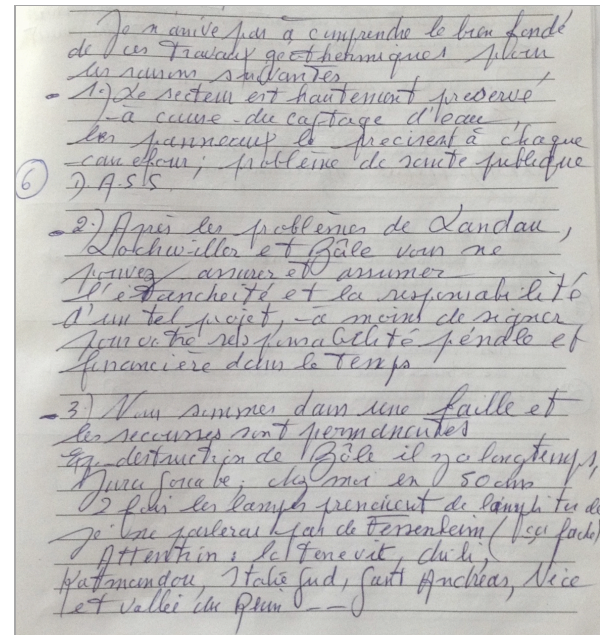 Je n'arrive pas à comprendre le bien fondé
de ces Travaux géothermiques pour
les raisons suivantes
- 1.) Le secteur est hautement préservé
- à cause du captage d'eau,
les panneaux le précisent à chaque
carrefour; problème de santé publique
6 D.A.S.S.
- 2.) Après les problèmes de Landau,
Lochwiller et Bâle vous ne
pouvez assurer et assumer
l'étancheité et la responsabilité
d'un tel projet, - à moins de signer
pour votre responsabilité pénale et
financière dans le Temps
- 3.) Nous sommes dans une faille et
les secousses sont permanentes
destruction de Bâle il y a longtemps,
Jura Souabe, chez moi en 50 ans
2 fois les lampes prenaient de l'amplitude
je ne parlerai pas de Fessenheim (ça fache)
Attention: chili,
Katmandou, Italie Sud, Sant Andréas, Nice
et vallée du Rhin ---